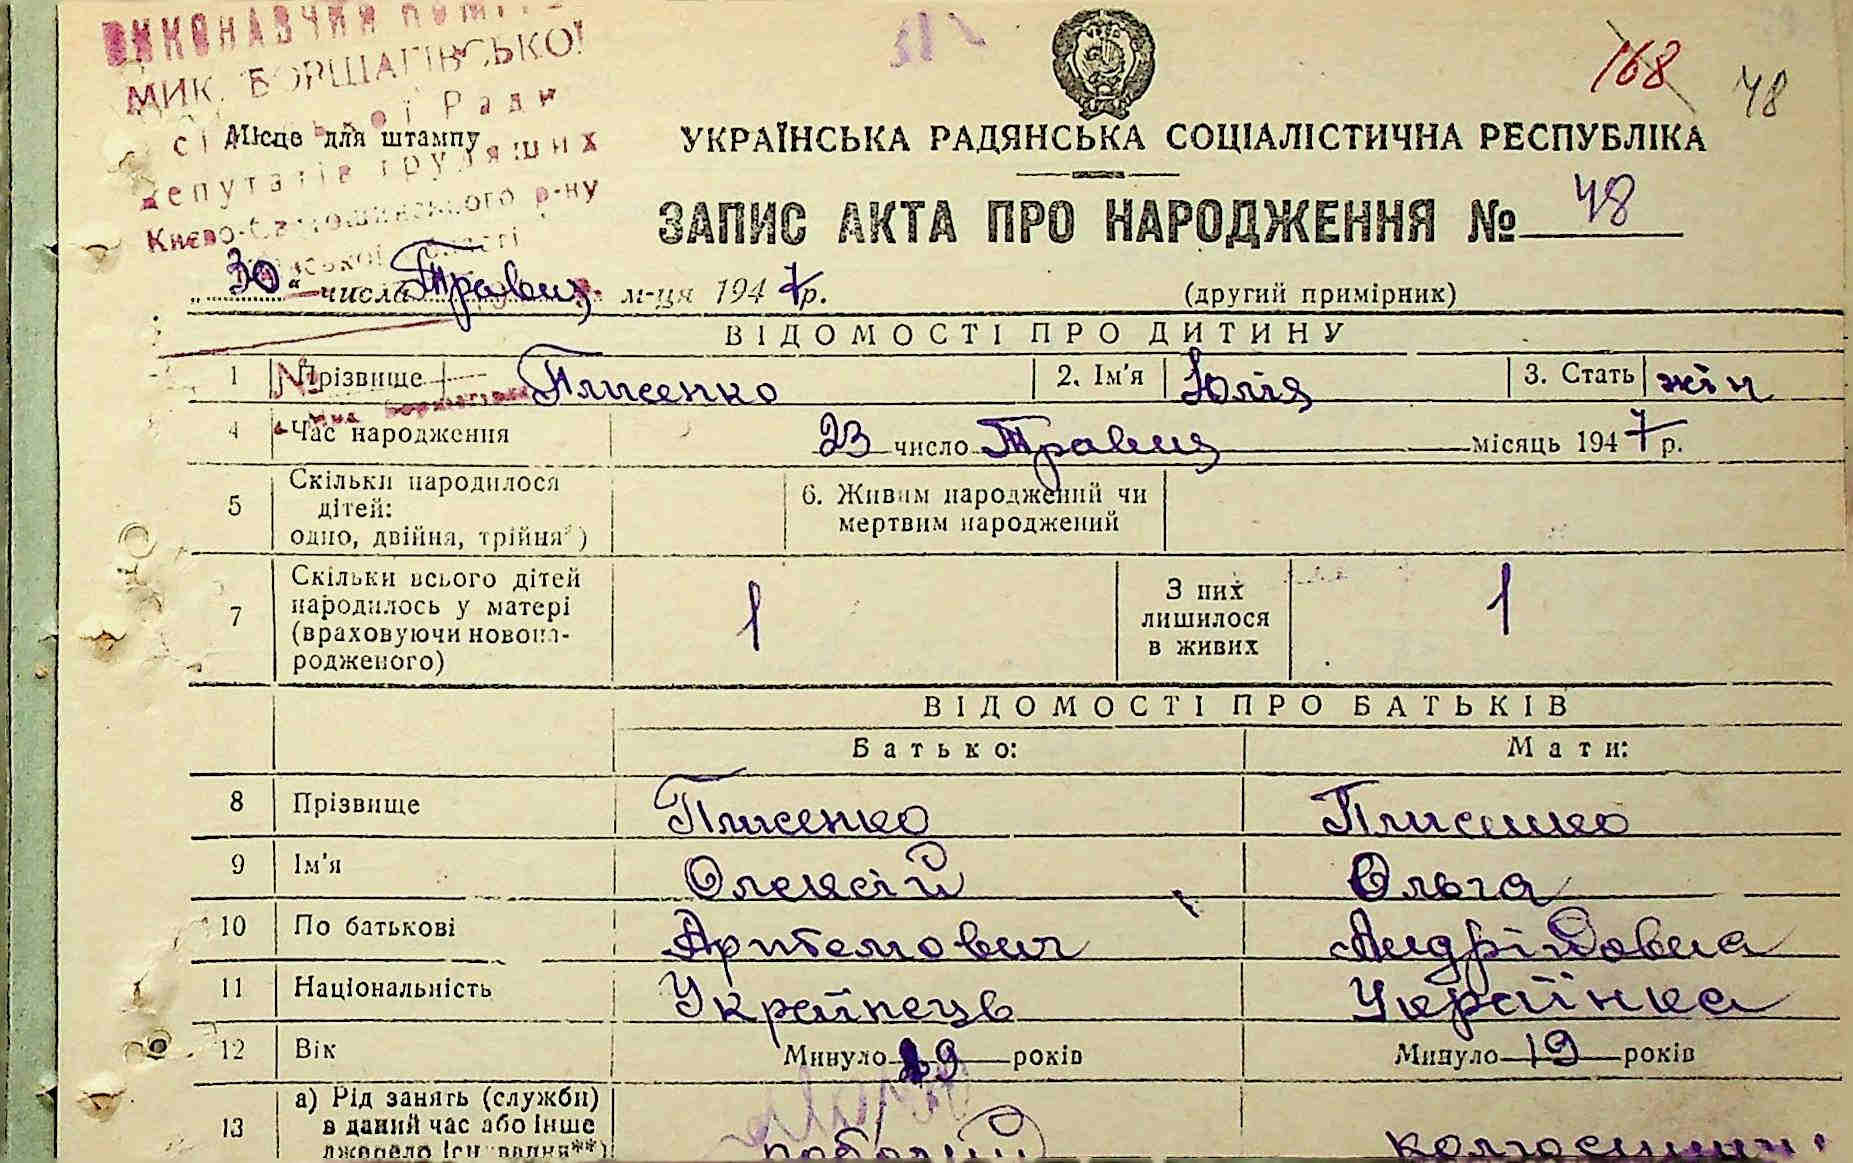 ВИКОНАВЧИЙ КОМІТЕ
МИК. БОРЩАГІВСЬКОЇ
сільської Ради
депутатів трудящих
Києво-Святошинського р-ну
Київської області
Місце для штампу
168 48
УКРАЇНСЬКА РАДЯНСЬКА СОЦІАЛІСТИЧНА РЕСПУБЛІКА
ЗАПИС АКТА ПРО НАРОДЖЕННЯ № 48
„30“ числа Травня м-ця 1947 р. (другий примірник)
ВІДОМОСТІ ПРО ДИТИНУ
1 Прізвище Плисенко 2. Ім'я Юлія 3. Стать жін
4 Час народження 23 число Травня місяць 1947 р.
5 Скільки народилося дітей: одно, двійня, трійня*) 6. Живим народжений чи мертвим народжений
7 Скільки всього дітей народилось у матері (враховуючи новонародженого) 1 З них лишилося в живих 1
ВІДОМОСТІ ПРО БАТЬКІВ
Батько: Мати:
8 Прізвище Плисенко Плисенко
9 Ім'я Олексій Ольга
10 По батькові Артемович Андріівна
11 Національність Українець Українка
12 Вік Минуло 29 років Минуло 19 років
13 а) Рід занять (служби) в даний час або інше джерело існування**) робочий